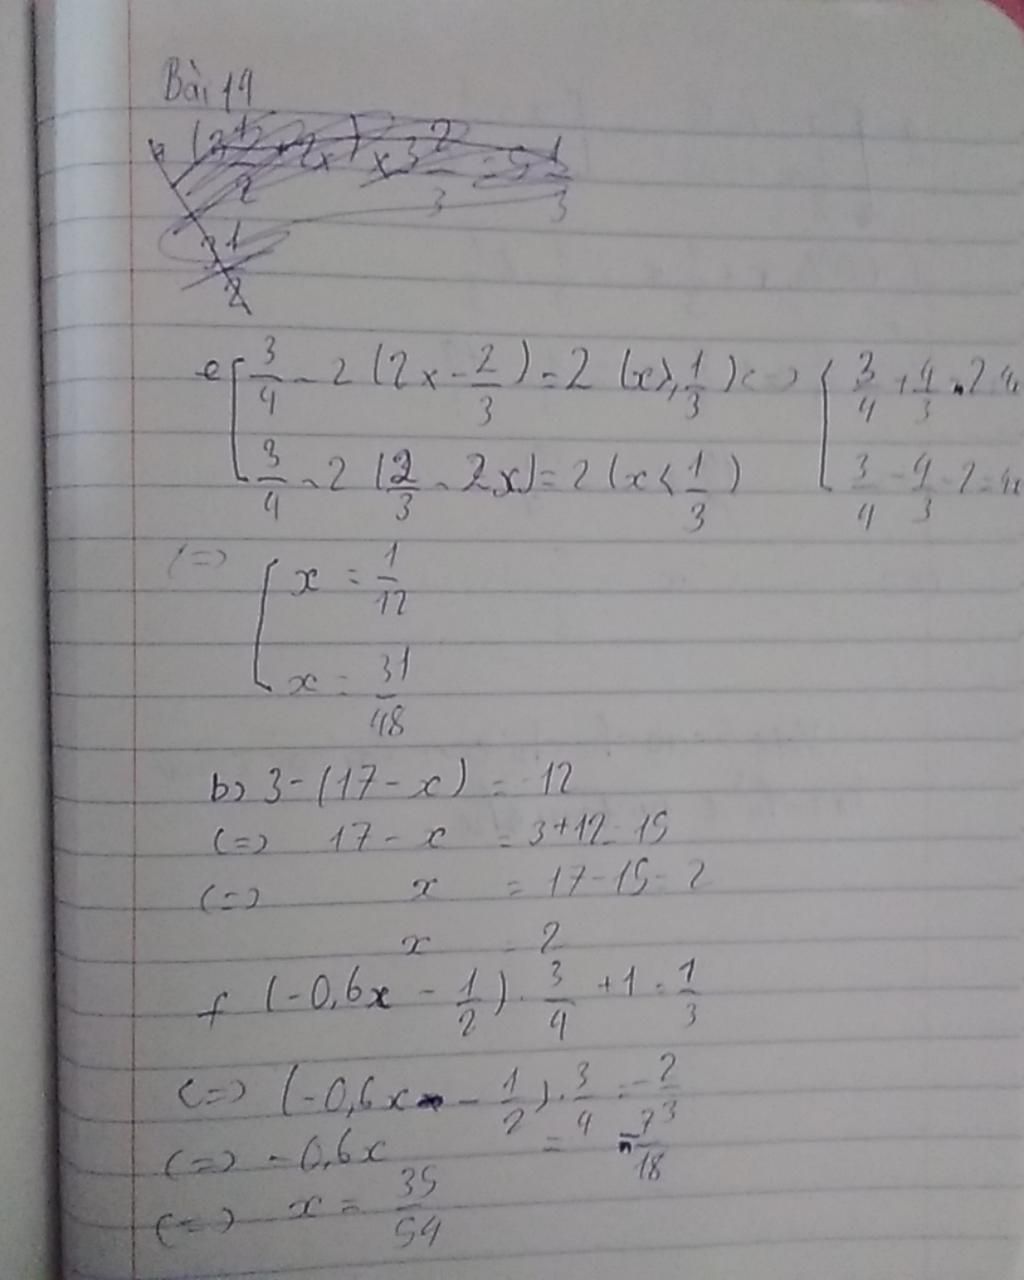 Bài 19
e [ 3/4 - 2 (2x - 2/3) = 2 (x ≥ 1/3) <=> [ 3/4 + 4/3 - 2 = 4x
[ 3/4 - 2 (2/3 - 2x) = 2 (x < 1/3) [ 3/4 - 4/3 - 2 = 4x
(=) [ x = 1/12
[ x = 31/48
b) 3 - (17 - x) = -12
(=) 17 - x = 3 + 12 = 15
(=) x = 17 - 15 = 2
x = 2
f (-0,6x - 1/2) . 3/4 + 1 = 1/3
(=) (-0,6x - 1/2) . 3/4 = -2/3
(=) - 0,6x = -7/18
(=) x = 35/54